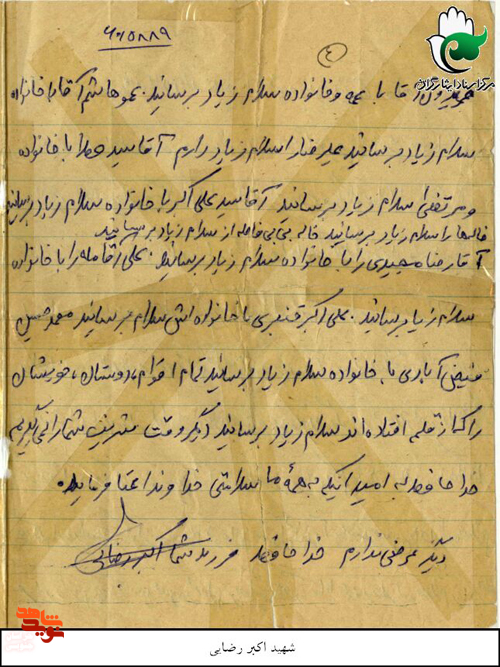 مرکز اسناد ایثارگران
۶۶۵۸۸۹
(۴)
آقا با عمه و خانواده سلام زیاد برسانید. عمو هاشم آقا با خانواده
سلام زیاد برسانید علیرضا را سلام زیاد دارم آقا سید عطا با خانواده
و مرتضی سلام زیاد برسانید آقا سید علی اکبر با خانواده سلام زیاد برسانید
خاله‌ها را سلام زیاد برسانید خاله بی‌بی را سلام زیاد برسانید
آقا رضا مجیدی را با خانواده سلام زیاد برسانید. علی آقا را با خانواده
سلام زیاد برسانید. علی اکبر قنبری با خانواده اش سلام برسانید محمد حسین
فیض آبادی با خانواده سلام زیاد برسانید تمام اقوام، دوستان، خویشان
را که از قلم افتاده اند سلام زیاد برسانید دیگر وقت شریف شما را نمی‌گیریم
خداحافظ به امید آنکه به همهٔ ما سلامتی خداوند اعطا فرماید.
دیگر عرضی ندارم خداحافظ فرزند شما اکبر رضائی
شاهد
نوید
شهید اکبر رضایی